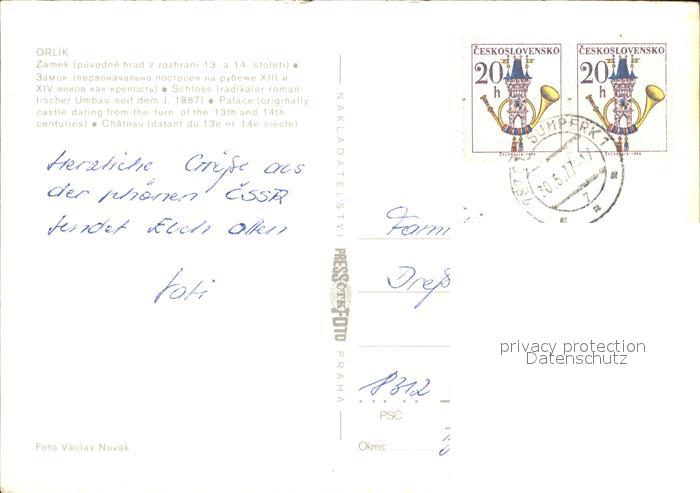 ORLÍK
Zámek (původně hrad z rozhraní 13. a 14. století) ●
Замок (первоначально построен на рубеже XIII и
XIV веков как крепость) ● Schloss (radikaler roman-
tischer Umbau seit dem J. 1887) ● Palace (originally
castle dating from the turn of the 13th and 14th
centuries) ● Château (datant du 13e et 14e siècle)
Herzliche Grüße aus
der schönen ČSSR
sendet Euch allen
Foto Václav Novák
NAKLADATELSTVÍ
PRESSFOTO
ČTK
PRAHA
ČESKOSLOVENSKO
20 h
ČESKOSLOVENSKO
20 h
ŠUMPERK 1
Fami
Dreß
8312
PSČ
Okres:
privacy protection
Datenschutz